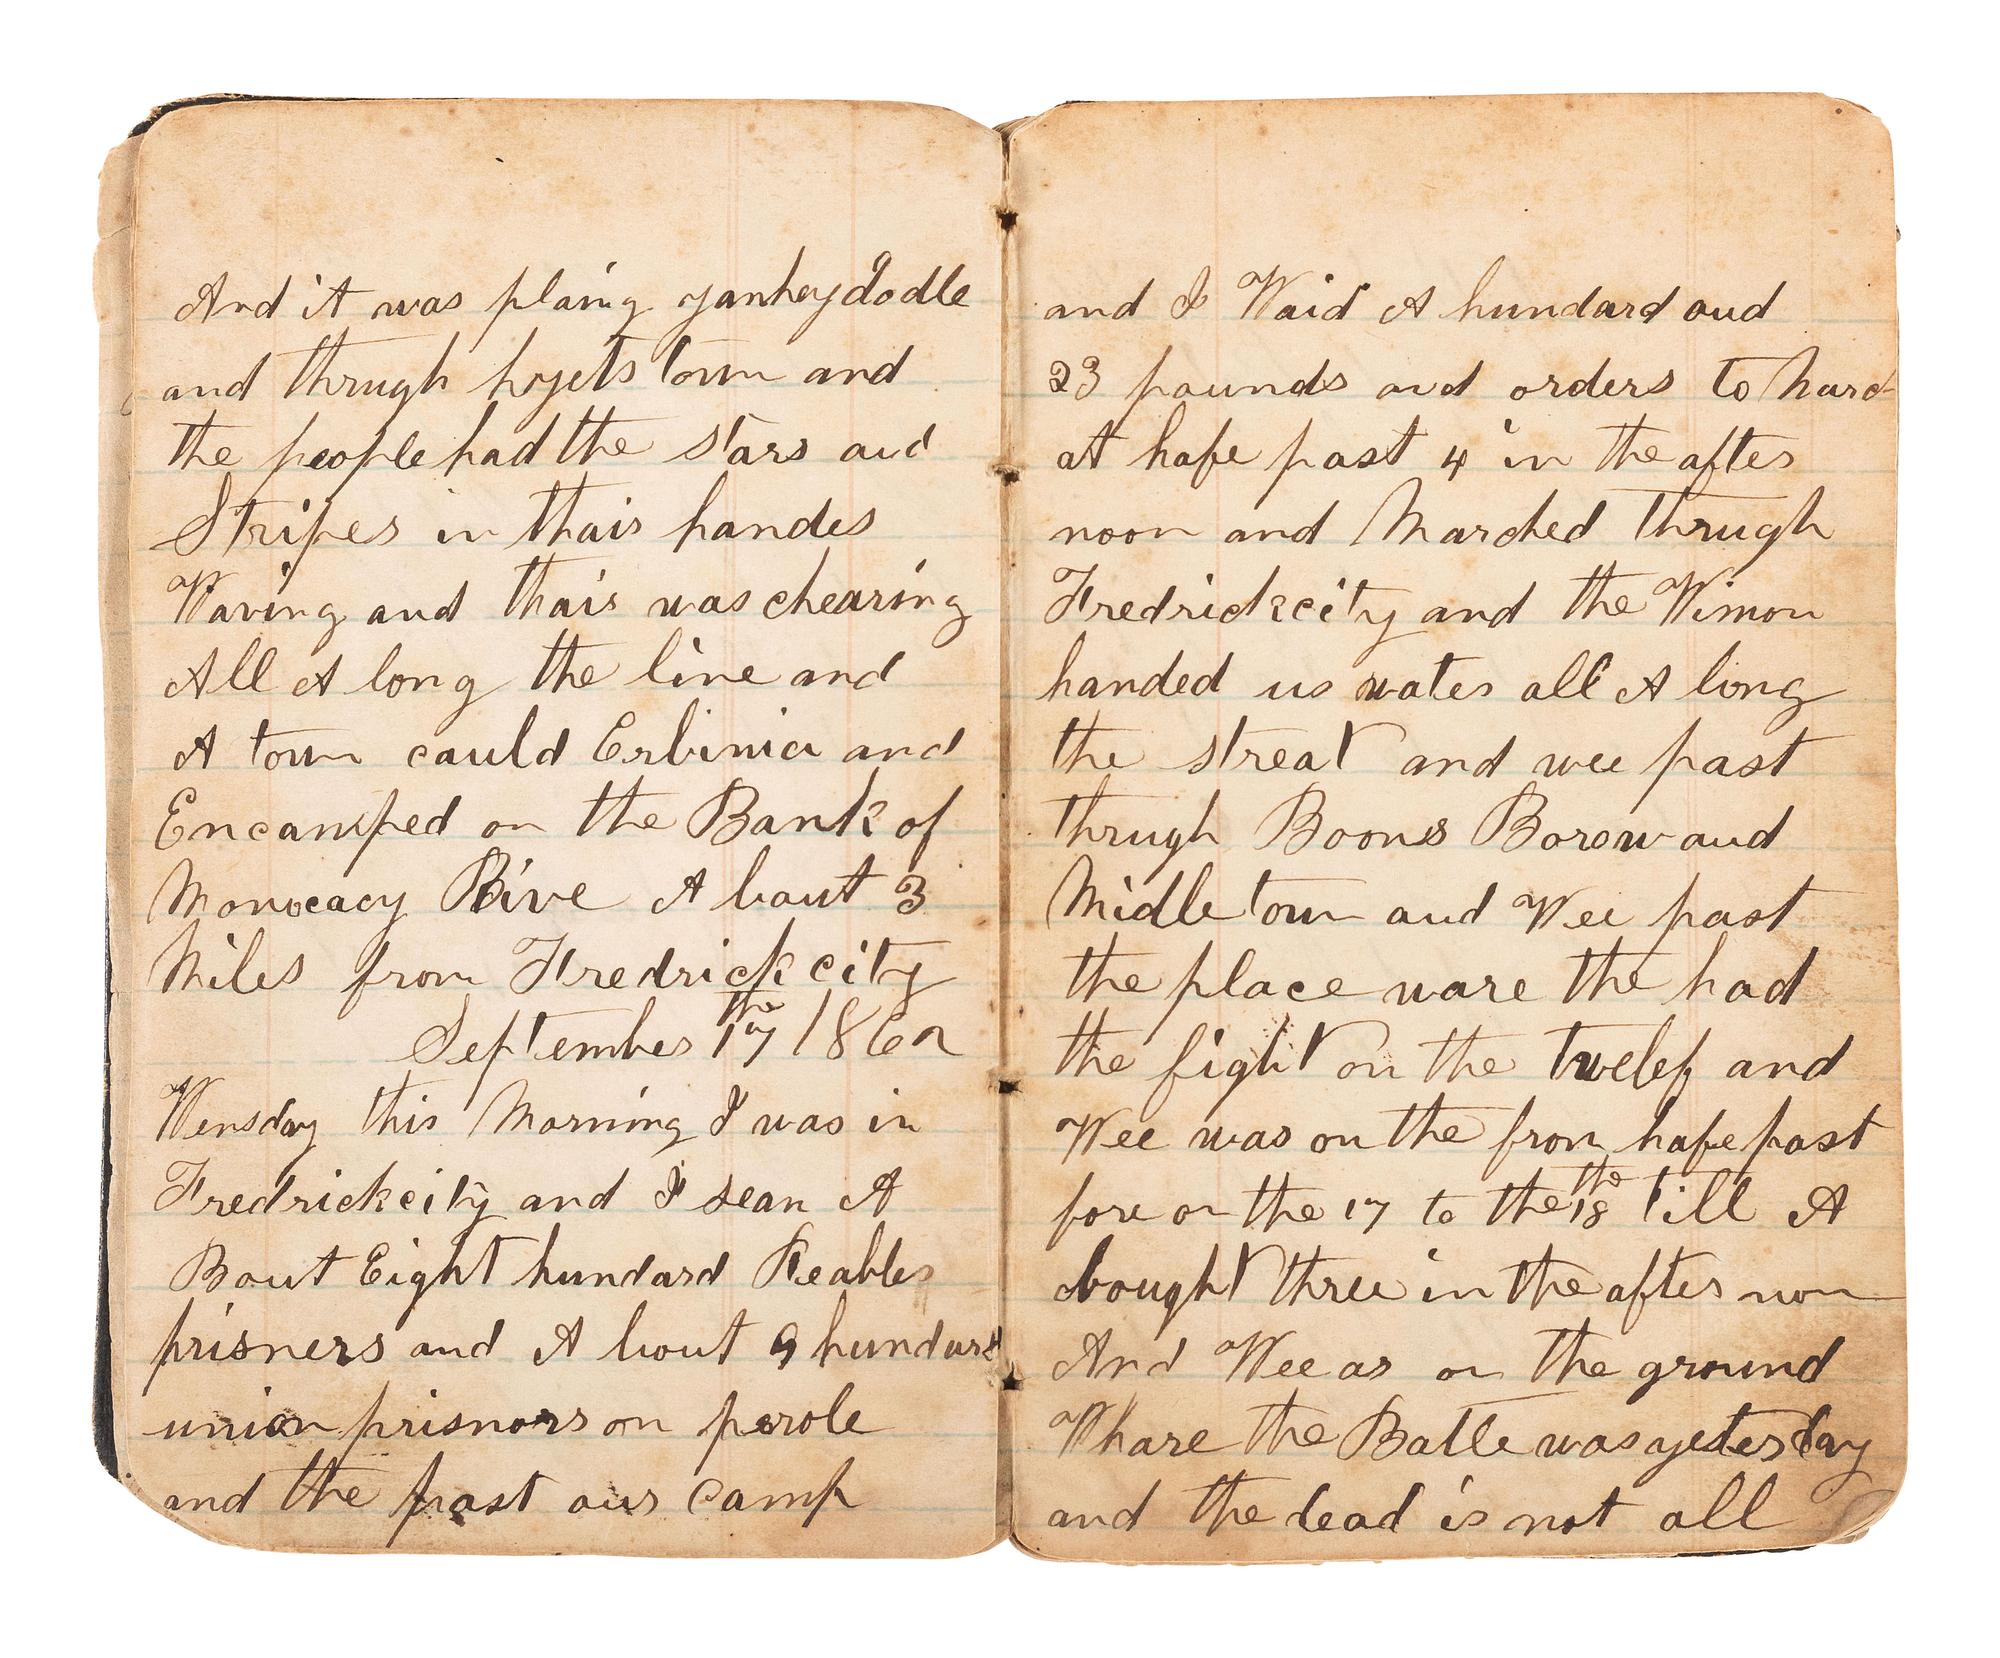 And it was plaing yankeydodle
and thrugh hyets town and
the people had the stars and
Stripes in thair handes
Waving and thair was chearing
All A long the line and
A town cauld Erbinia and
Encamped on the Bank of
Monocacy Rive A bout 3
Miles from Fredrick city
September 17the 1862
Wensday this Morning I was in
Fredrickcity and I sean A
Bout Eight hundard Reables
prisners and A bout 9 hundard
union prisnors on perole
and the past our camp
and I Waid A hundard and
23 pounds and orders to March
at hafe past 4 in the after
noon and Marched thrugh
Fredrickcity and the Wimon
handed us water all A long
the streat and wee past
thrugh Boons Borow and
Midletown and Wee past
the place ware the had
the fight on the twelef and
Wee was on the from hafe past
fore on the 17 to the 18the till A
bought three in the after non
And Wee as on the ground
Whare the Batle was yetesday
and the dead is not all